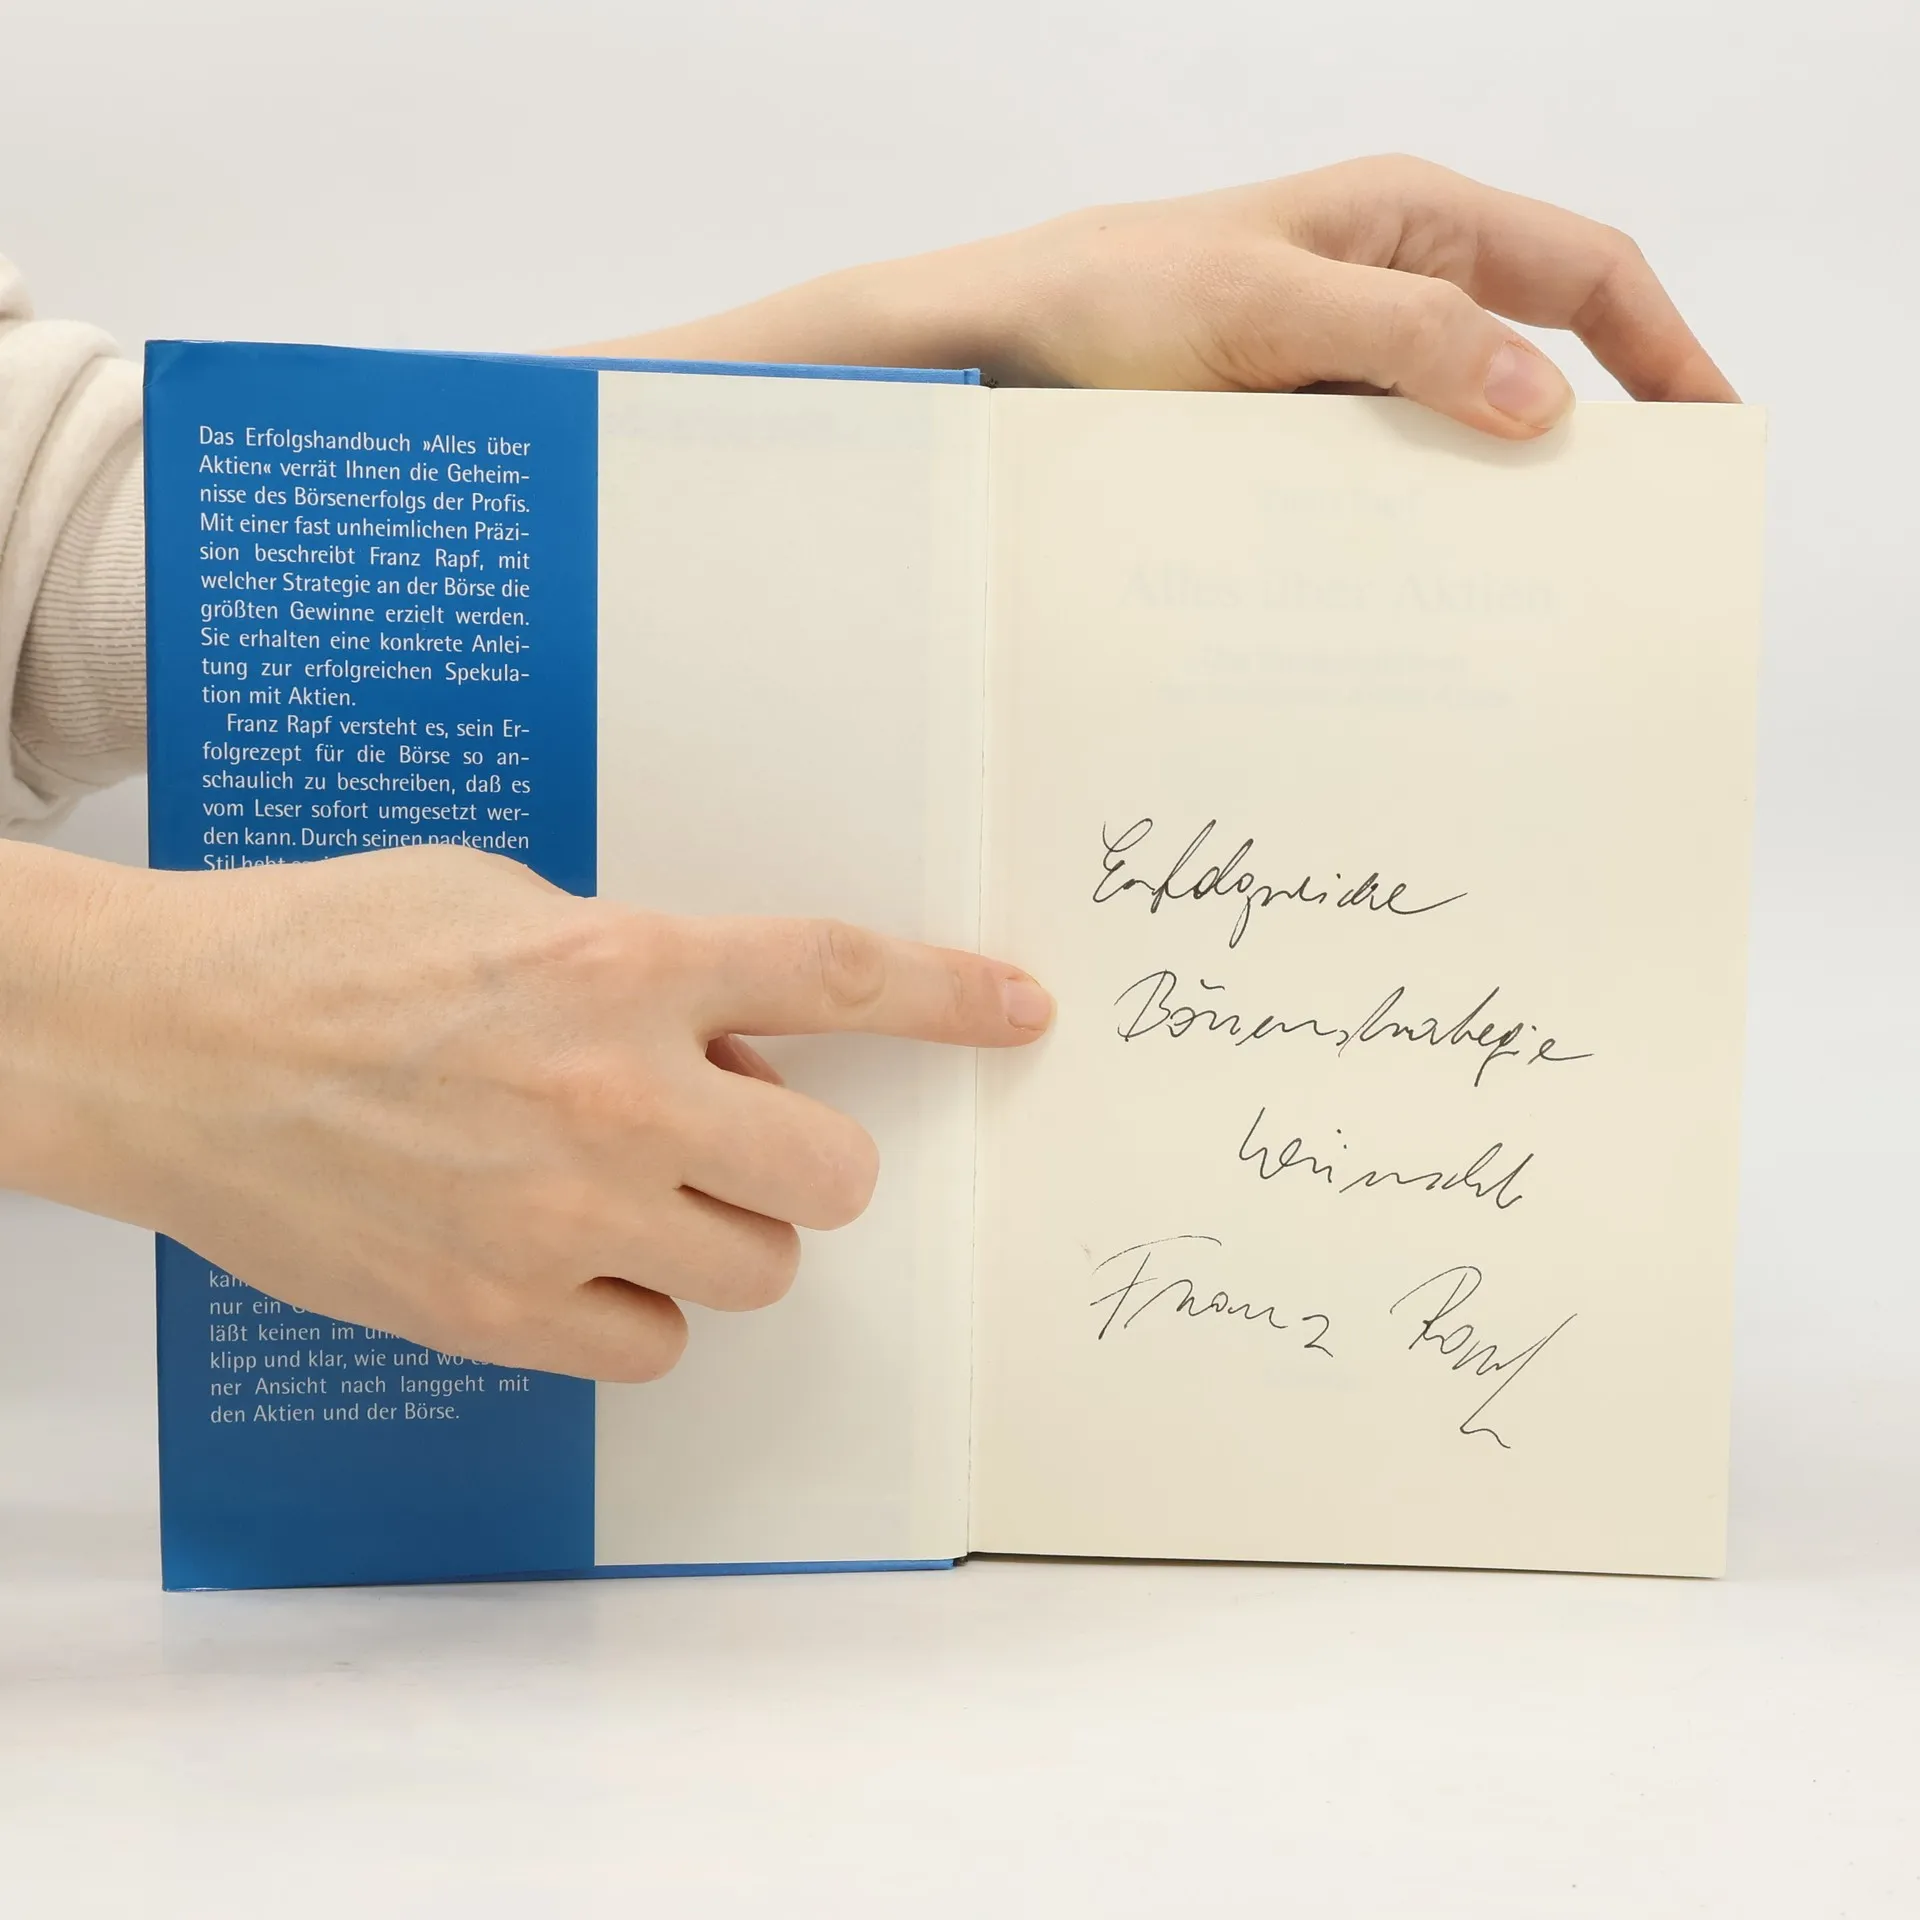 Das Erfolgshandbuch »Alles über
Aktien« verrät Ihnen die Geheim-
nisse des Börsenerfolgs der Profis.
Mit einer fast unheimlichen Präzi-
sion beschreibt Franz Rapf, mit
welcher Strategie an der Börse die
größten Gewinne erzielt werden.
Sie erhalten eine konkrete Anlei-
tung zur erfolgreichen Spekula-
tion mit Aktien.
Franz Rapf versteht es, sein Er-
folgrezept für die Börse so an-
schaulich zu beschreiben, daß es
vom Leser sofort umgesetzt wer-
den kann. Durch seinen packenden
Stil hebt
nur ein
läßt keinen im
klipp und klar, wie und wo
ner Ansicht nach langgeht mit
den Aktien und der Börse.
Alles über Aktien
Erfolgreiche
Börsenstrategie
wünscht
Franz Rapf